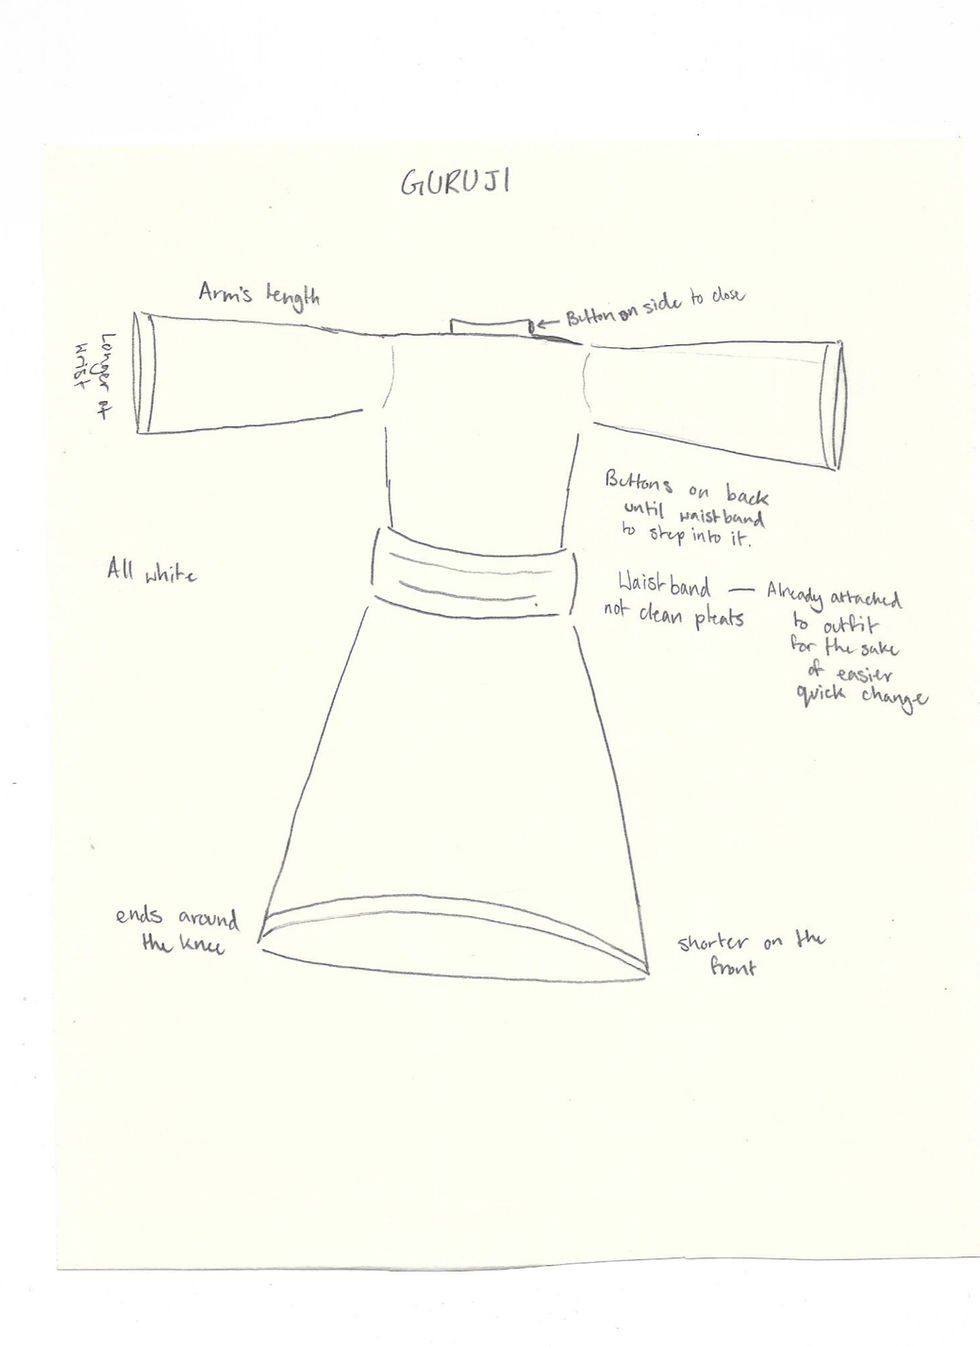 GURUJI
Arm's length
Button on side to close
Longer at
wrist
Buttons on back
until waistband
to step into it.
All white
Waistband — Already attached
not clean pleats to outfit
for the sake
of easier
quick change
ends around
the knee
shorter on the
front